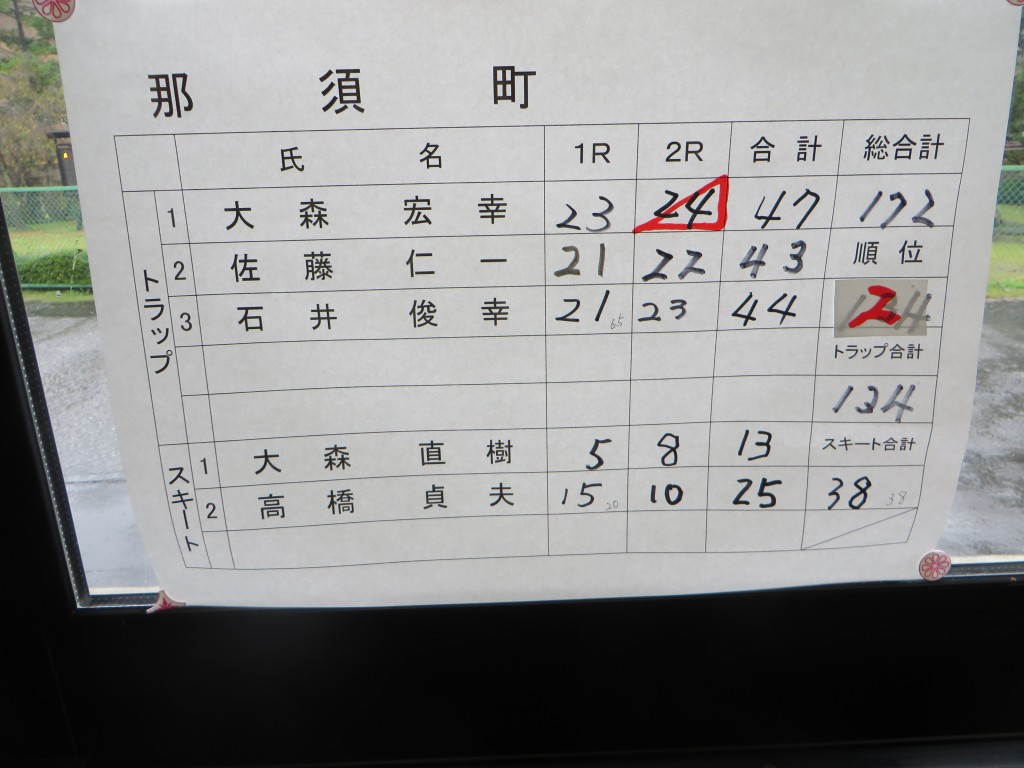 那須町
氏名 1R 2R 合計 総合計
トラップ
1 大森宏幸 23 24 47 172
2 佐藤仁一 21 22 43 順位
3 石井俊幸 21 65 23 44 2
トラップ合計
124
スキート
1 大森直樹 5 8 13 スキート合計
2 高橋貞夫 15 20 10 25 38 38